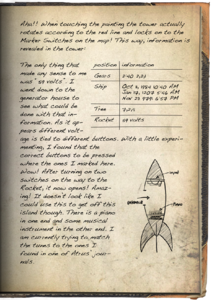 Aha!! When touching the painting the tower actually
rotates according to the red line and locks on to the
Marker Switches on the map! This way, information is
revealed in the tower:
The only thing that
made any sense to me
was "59 volts". I
went down to the
generator house to
see what could be
done with that in-
formation. As it gen-
position information
Gears 2:40
Ship Oct 11, 1984 10:04 AM
Jan 17, 1207 5:46 AM
Nov 23, 9791 6:57 PM
Tree
Rocket 59 volts
pears different volt-
age is tied to different buttons. With a little exper-
menting, I found that the
correct buttons to be pressed
where the ones I marked here.
Wow! After turning on two
switches on the way to the
Rocket, it now opens! Amaz-
ing! It doesn't look like I
could use this to get off this
island though. There is a piano
in one end and some musical
instrument in the other end. I
am currently trying to match
the tunes to the ones I
found in one of Atrus' jour-
nals.